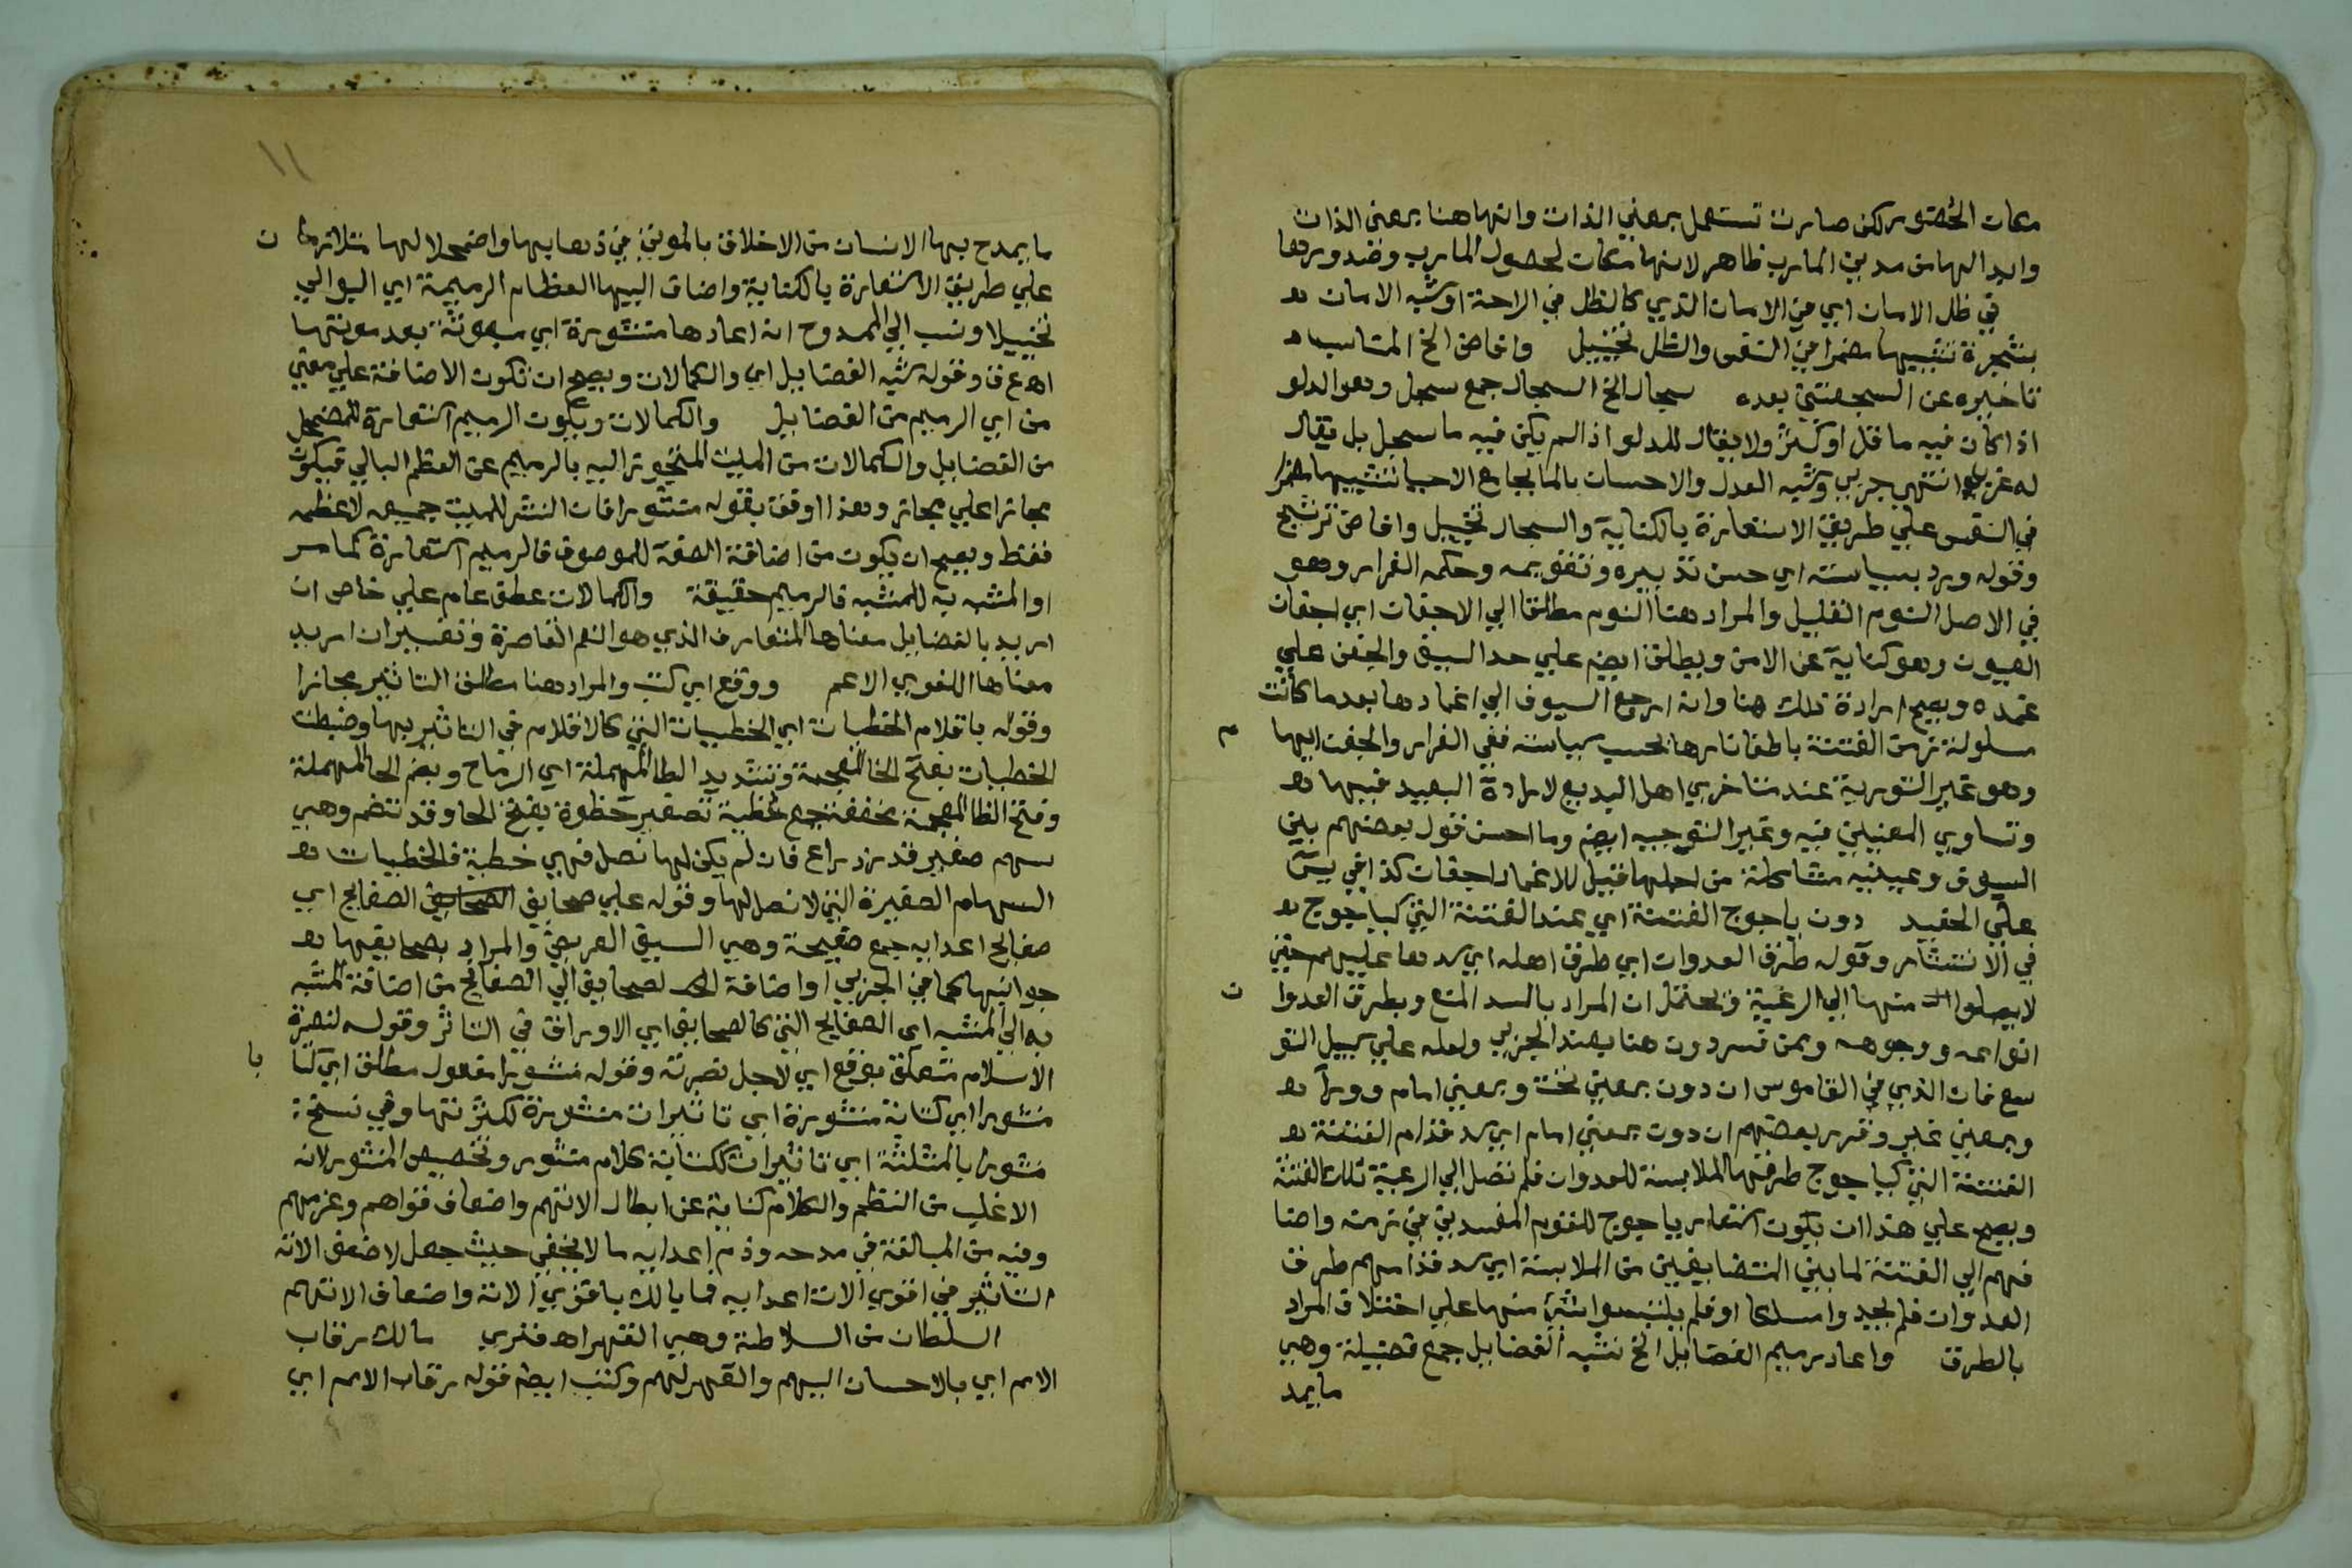 مكان الحضور لكن صارت تستعمل بمعني الذات وانها هنا بمعني الذات
وايد الهامن مدين المارب ظاهر لانها مكان لحصول المارب وضد وردها
في ظل الامان اي في الامان الذي كالظل في الراحة او شبه الامان
بشجرة تشبيها مضمرا في النفس والظل تخييل وافاض الخ المناسب
تاخيره عن السجعتين بعده سجال الخ السجال جمع سجل وهو الدلو
اذا كان فيه ما قل او كثر ولا يقال للدلو اذا لم يكن فيه ما سجل بل يقال
له غرب انتهي جزبي وشبه العدل والاحسان بالما بجامع الاحيا تشبيها مضمرا
في النفس علي طريق الاستعارة بالكناية والسجال تخييل وافاض ترشيح
وقوله ورد بسياسته اي حسن تدبيره وتقويمه وحكمه الغرار وهو
في الاصل النوم القليل والمراد هنا النوم مطلقا الي الاجفان اي اجفان
العيون وهو كناية عن الامن ويطلق ايضا علي حد السيف والجفن علي
غمده ويصح ارادة ذلك هنا وانه ارجع السيوف الي اغمادها بعد ما كانت
مسلولة زمن الفتنة باطفا نارها بحسب سياسته ففي الغرار والجفن ايها م
وهو غير التورية عند متاخري اهل البديع لارادة البعيد فيها
وتساوي المعنيين فيه وغير التوجيه ايضا وما احسن قول بعضهم بين
السيوف وعينيه مشاكلة من اجلها قيل للاغماد اجفان كذا في يس
علي الحفيد دون ياجوج الفتنة اي عند الفتنة التي كياجوج
في الانتشار وقوله طرق العدوان اي طرق اهله اي سدها عليهم حتي
لا يصلوا منها الي الرعية ويحتمل ان المراد بالسد المنع وبطرق العدوا ن
انواعه ووجوهه وممن فسر دون هنا بعند الجزبي ولعله علي سبيل التو
سع فان الذي في القاموس ان دون بمعني تحت وبمعني امام وورآ
وبمعني غير وقرر بعضهم ان دون بمعني امام اي سد قدام الفتنة
الفتنة التي كياجوج طرقها الملابسة للعدوان فلم تصل الي الرعية تلك الفتنة
ويصح علي هذا ان يكون استعار ياجوج للقوم المفسدين في زمنه واضا
فهم الي الفتنة لما بين المتضايفين من الملابسة اي سد قدامهم طرق
العدوان فلم يجدوا مسلكا او فلم يلتبسوا بشي منها علي اختلاف المراد
بالطرق واعاد رميم الفضايل الخ شبه الفضايل جمع فضيلة وهي
مايمد
١١
ما يمدح بها الانسان من الاخلاق بالموتي في ذهابها واضمحلالها ن
علي طريق الاستعارة بالكناية واضاف اليها العظام الرميمة اي البوالي
تخييلا ونسب الي الممدوح انه اعادها منشورة اي مبعوثة بعد موتها
اهـ ع ف وقوله شبه الفضايل اي والكمالات ويصح ان تكون الاضافة علي معني
من اي الرميم من الفضايل والكمالات ويكون الرميم استعارة للمضمحل
من الفضايل والكمالات من الميت المتجوز اليه بالرميم عن العظم البالي فيكون
مجازا علي مجاز وهذا اوفق بقوله منشورا فان النشر للميت جميعه لا عظمه
فقط ويصح ان يكون من اضافة الصفة للموصوف فالرميم استعارة كما مر
او المشبه به للمشبه فالرميم حقيقة والكمالات عطف عام علي خاص ان
اريد بالفضايل معناها المتعارف الذي هو النعم القاصرة وتفسير ان اريد
معناها اللغوي الاعم ووقع اي كتب والمراد هنا مطلق التاثير مجازا
وقوله باقلام الخطيات اي الخطيات التي كالاقلام في التاثير بها وضبطت
الخطيات بفتح الخا المعجمة وتشديد الطا المهملة اي الرماح وبضم الحا المهملة
وفتح الظا المعجمة مخففة جمع حظية تصغير حظوة بفتح الحا وقد تضم وهي
سهم صغير قدر ذراع فان لم يكن لها نصل فهي خطية فالخطيات
السهام الصغيرة التي لا نصل لها وقوله علي صحايف الصفايح اي
صفايح اعدايه جمع صفيحة وهي السيف العريض والمراد بصحايفها
جوانبها كما في الجزبي او اضافة الصحايف الي الصفايح من اضافة المشبه
به الي المشبه اي الصفايح التي كالصحايف اي الاوراق في التاثر وقوله لنصرة
الاسلام متعلق بوقع اي لاجل نصرته وقوله منشورا مفعول مطلق اي كتا با
منشورا اي كتابة منشورة اي تاثيرات منشورة لكثرتها وفي نسخة
منثورا بالمثلثة اي تاثيرات ككتابة كلام منثور وتخصيص المنثور لانه
الاغلب من النظم والكلام كناية عن ابطال الاتهم واضعاف قواهم وعزمهم
وفيه من المبالغة في مدحه وذم اعدايه ما لا يخفي حيث جعل لاضعف الاته
التاثير في اقوي الات اعدايه فما بالك باقوي الاته واضعاف الاتهم
السلطان من السلاطة وهي القهر اهـ فنري مالك رقاب
الامم اي بالاحسان اليهم والقهر لهم وكتب ايضا قوله رقاب الامم اي